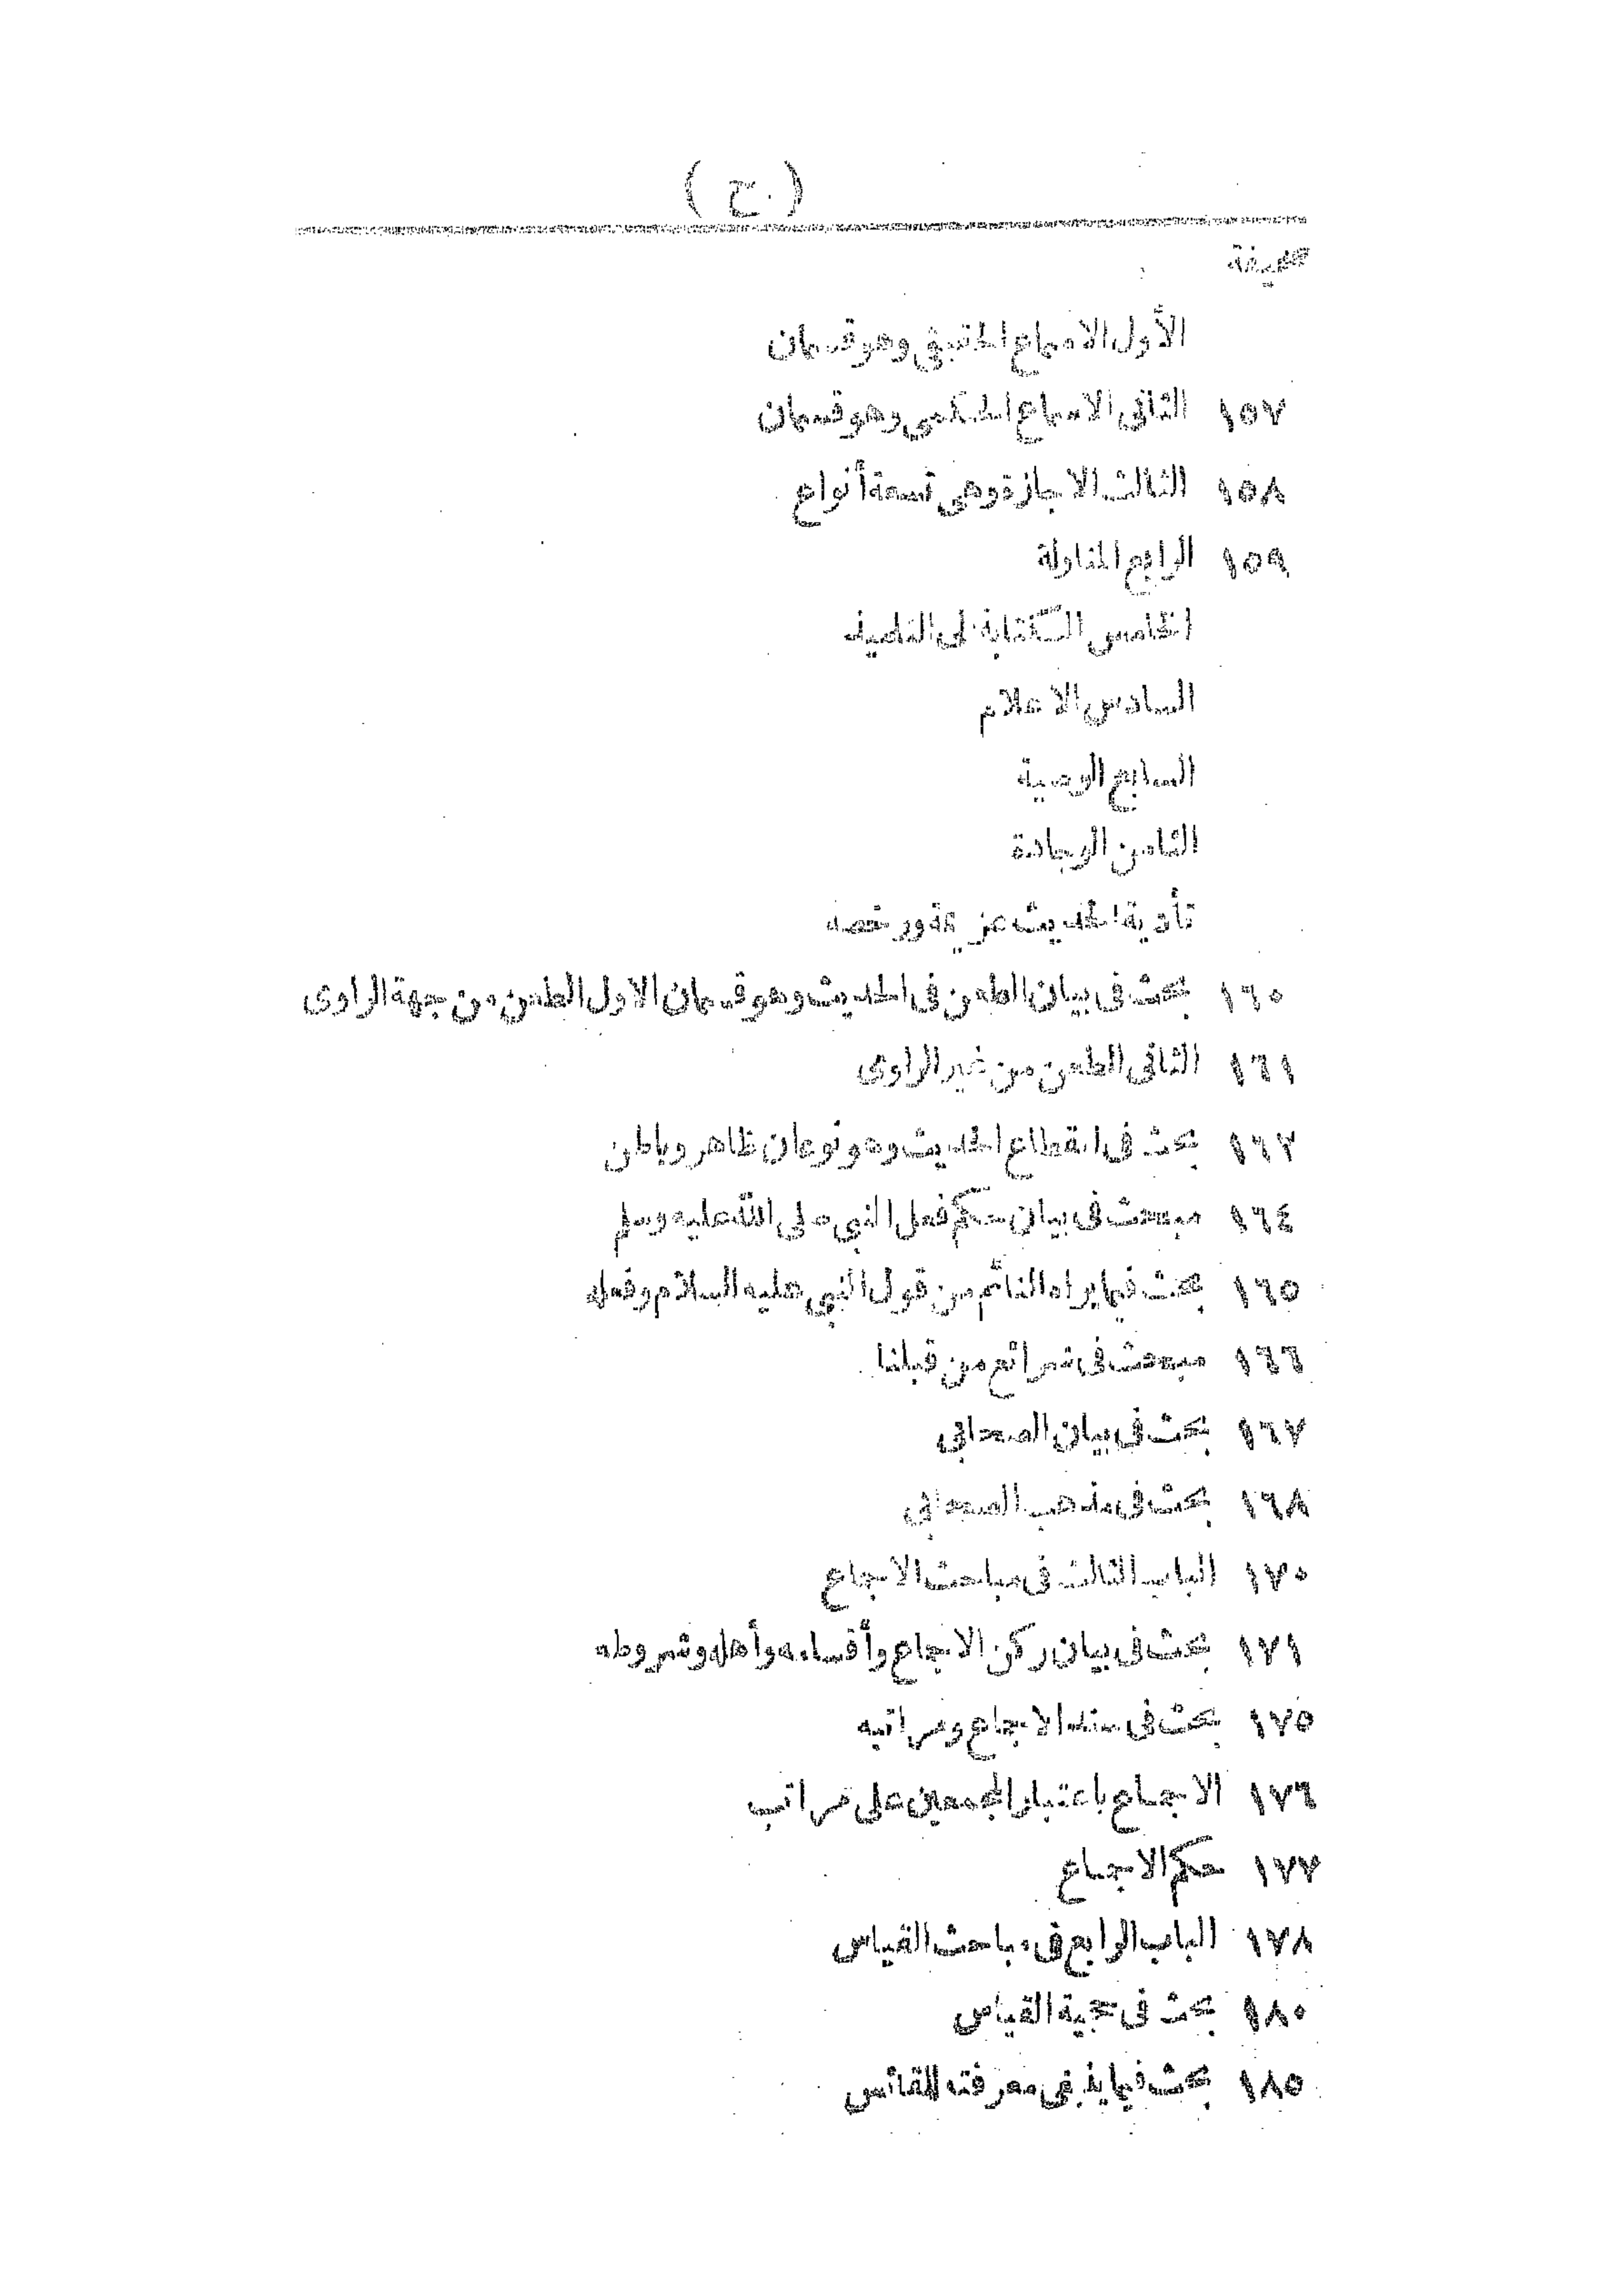 ( ح )
صحيفة
الأول الاسماع الحقيقي وهو قسمان
١٥٧ الثانى الاسماع الحكمى وهو قسمان
١٥٨ الثالث الاجازة وهى تسعة أنواع
١٥٩ الرابع المناولة
الخامس الكتابة الى التلميذ
السادس الاعلام
السابع الوصية
الثامن الوجادة
تأدية الحديث عزيمة ورخصه
١٦٠ بحث فى بيان الطعن فى الحديث وهو قسمان الاول الطعن من جهة الراوى
١٦١ الثانى الطعن من غير الراوى
١٦٢ بحث فى انقطاع الحديث وهو نوعان ظاهر وباطن
١٦٤ مبحث فى بيان حكم فعل النبى صلى الله عليه وسلم
١٦٥ بحث فيما يراه النائم من قول النبى عليه السلام وفعله
١٦٦ مبحث فى شرائع من قبلنا
١٦٧ بحث فى بيان الصحابى
١٦٨ بحث فى مذهب الصحابى
١٧٠ الباب الثالث فى مباحث الاجماع
١٧١ بحث فى بيان ركن الاجماع وأقسامه وأهله وشروطه
١٧٥ بحث فى سند الاجماع ومراتبه
١٧٦ الاجماع باعتبار المجمعين على مراتب
١٧٧ حكم الاجماع
١٧٨ الباب الرابع فى مباحث القياس
١٨٠ بحث فى حجية القياس
١٨٥ بحث فيما ينبغى معرفته للقائس